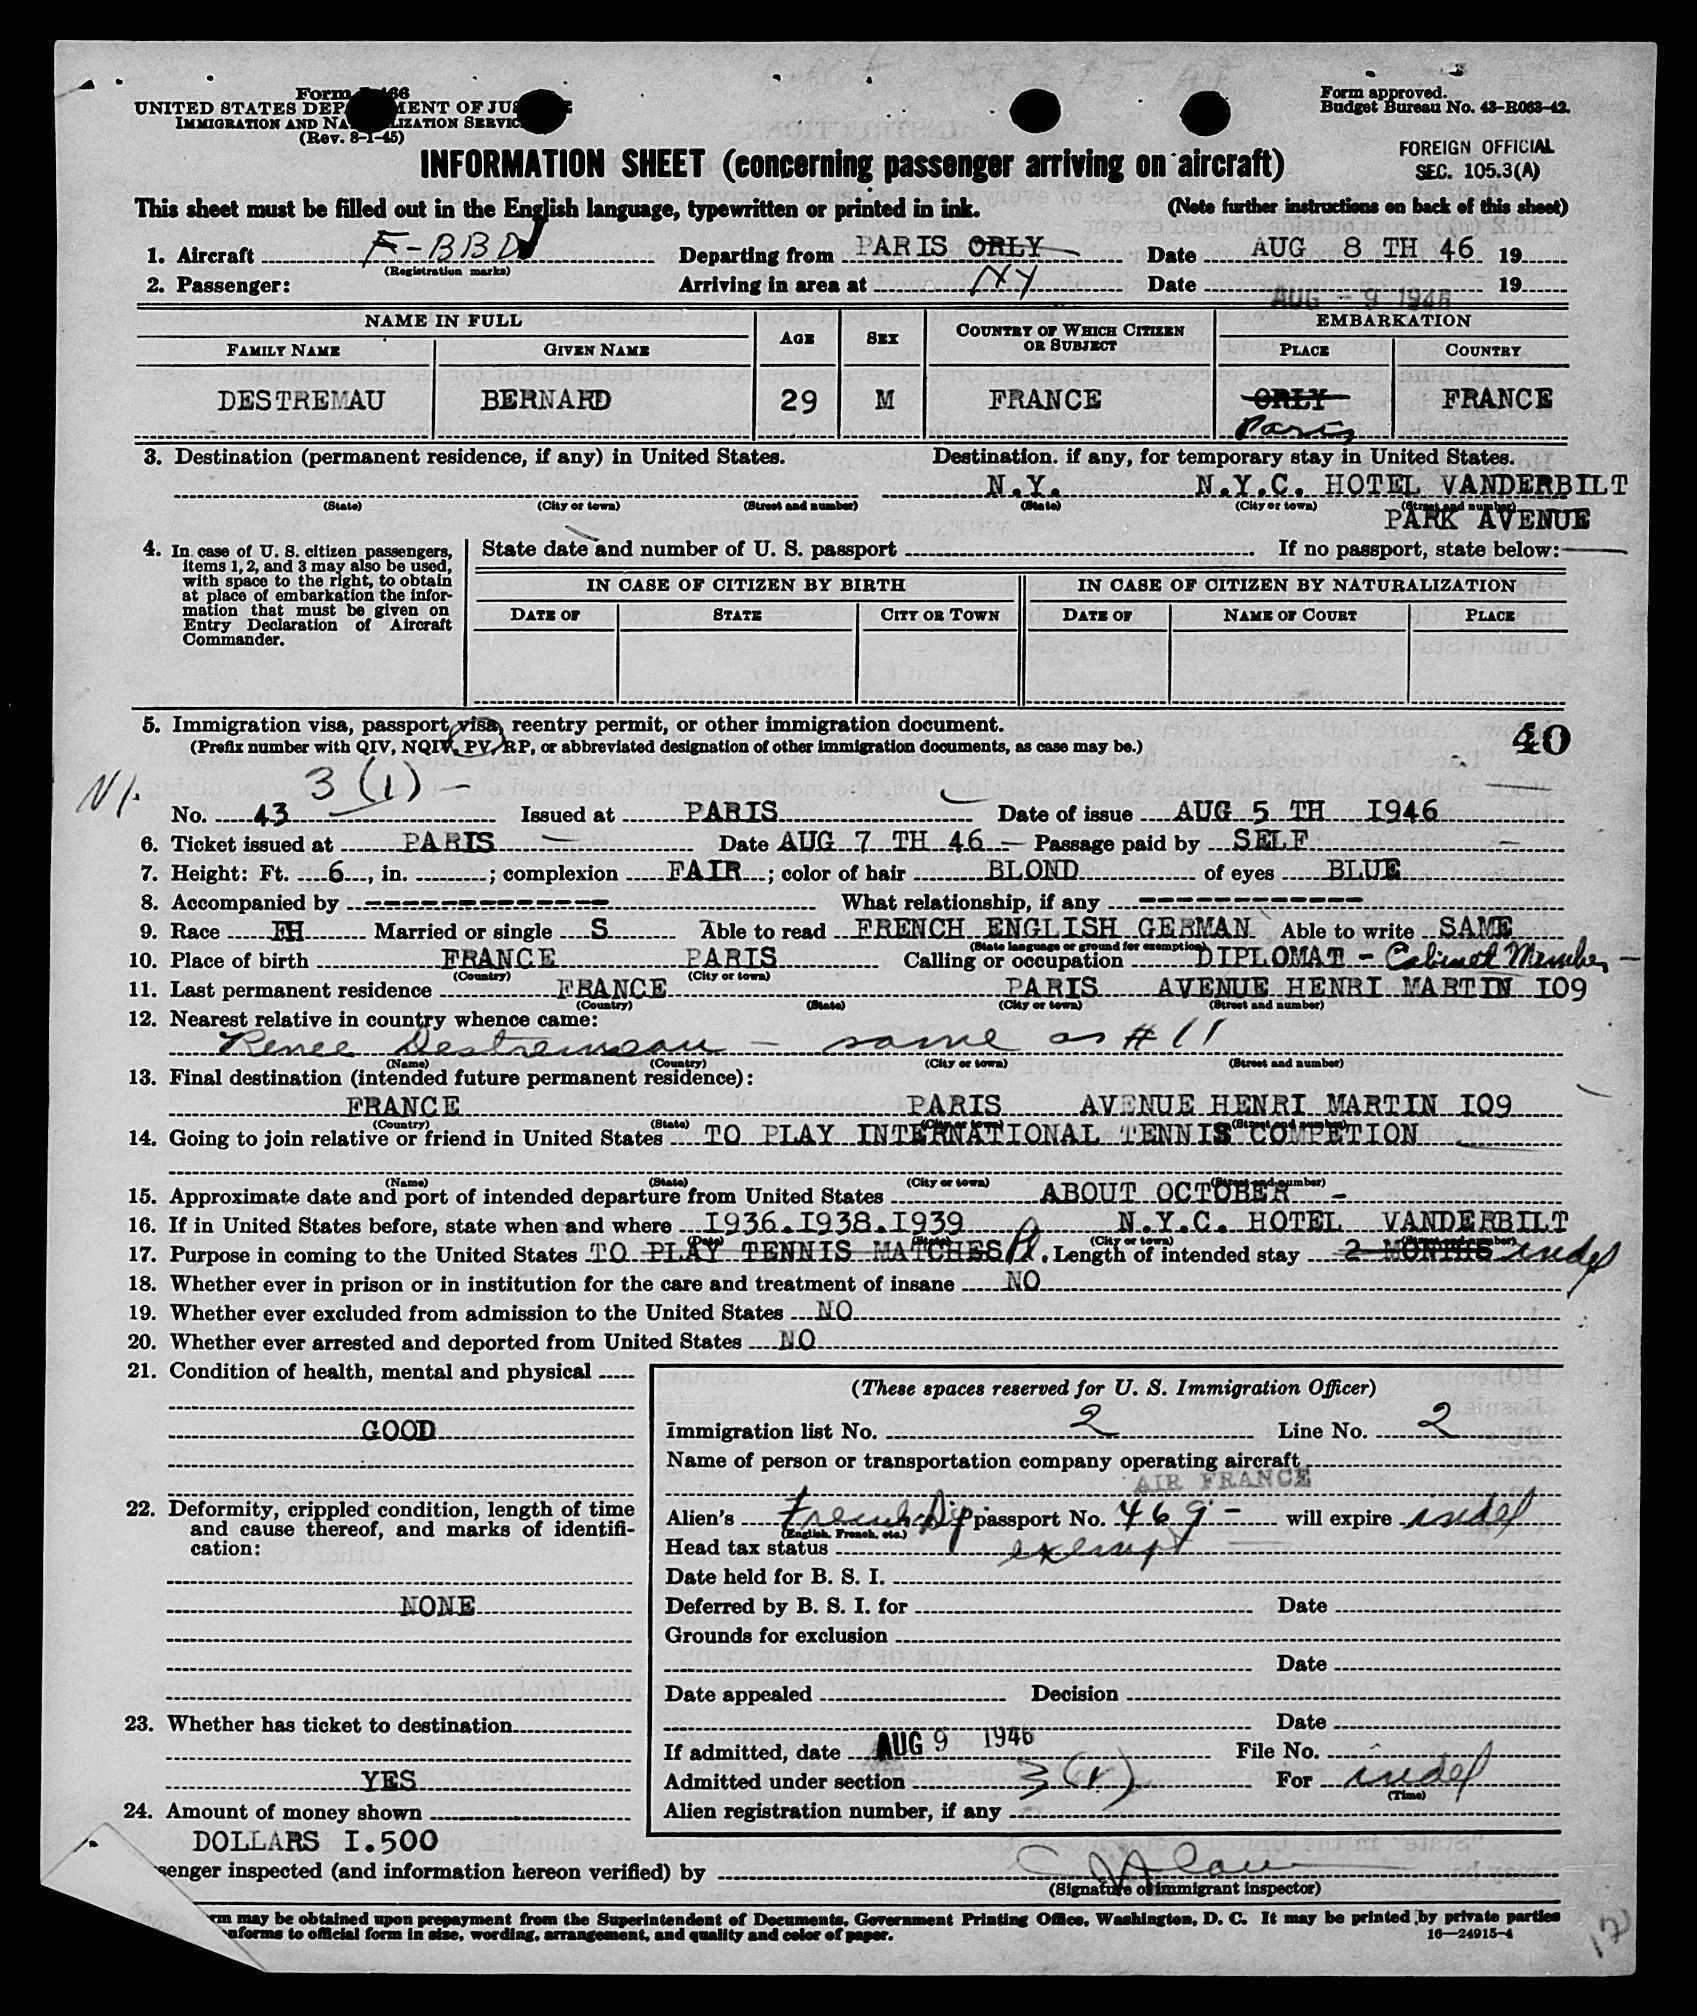 Form I-466
UNITED STATES DEPARTMENT OF JUSTICE
IMMIGRATION AND NATURALIZATION SERVICE
(Rev. 8-1-45)
Form approved.
Budget Bureau No. 43-R063-42.
FOREIGN OFFICIAL
SEC. 105.3(A)
INFORMATION SHEET (concerning passenger arriving on aircraft)
This sheet must be filled out in the English language, typewritten or printed in ink. (Note further instructions on back of this sheet)
1. Aircraft F-BBDJ Departing from PARIS ORLY Date AUG 8 TH 46 19
(Registration marks)
2. Passenger: Arriving in area at NY Date AUG - 9 1946 19
NAME IN FULL AGE SEX COUNTRY OF WHICH CITIZEN OR SUBJECT EMBARKATION
FAMILY NAME GIVEN NAME PLACE COUNTRY
DESTREMAU BERNARD 29 M FRANCE ORLY FRANCE
Paris
3. Destination (permanent residence, if any) in United States. Destination. if any, for temporary stay in United States.
N.Y. N.Y.C. HOTEL VANDERBILT
(State) (City or town) (Street and number) (State) (City or town) (Street and number)
PARK AVENUE
4. In case of U. S. citizen passengers,
items 1, 2, and 3 may also be used,
with space to the right, to obtain
at place of embarkation the infor-
mation that must be given on
Entry Declaration of Aircraft
Commander.
State date and number of U. S. passport If no passport, state below:
IN CASE OF CITIZEN BY BIRTH IN CASE OF CITIZEN BY NATURALIZATION
DATE OF STATE CITY OR TOWN DATE OF NAME OF COURT PLACE
5. Immigration visa, passport visa, reentry permit, or other immigration document. 40
(Prefix number with QIV, NQIV, PV, RP, or abbreviated designation of other immigration documents, as case may be.)
3 (1) -
No. 43 Issued at PARIS Date of issue AUG 5 TH I946
6. Ticket issued at PARIS Date AUG 7 TH 46 Passage paid by SELF
7. Height: Ft. 6, in. ; complexion FAIR ; color of hair BLOND of eyes BLUE
8. Accompanied by ------------- What relationship, if any ------------
9. Race FH Married or single S Able to read FRENCH ENGLISH GERMAN Able to write SAME
(State language or ground for exemption)
10. Place of birth FRANCE PARIS Calling or occupation DIPLOMAT - Cabinet Member -
(Country) (City or town)
11. Last permanent residence FRANCE PARIS AVENUE HENRI MARTIN I09
(Country) (State) (City or town) (Street and number)
12. Nearest relative in country whence came:
Renee Destremeau - same as # 11
(Name) (Country) (City or town) (Street and number)
13. Final destination (intended future permanent residence):
FRANCE PARIS AVENUE HENRI MARTIN I09
(Country) (State) (City or town) (Street and number)
14. Going to join relative or friend in United States TO PLAY INTERNATIONAL TENNIS COMPETION
(Name) (State) (City or town) (Street and number)
15. Approximate date and port of intended departure from United States ABOUT OCTOBER -
16. If in United States before, state when and where I936.I938.I939 N.Y.C. HOTEL VANDERBILT
(Date) (State) (City or town) (Street and number)
17. Purpose in coming to the United States TO PLAY TENNIS MATCHES . Length of intended stay 2 MONTHS indef
18. Whether ever in prison or in institution for the care and treatment of insane NO
19. Whether ever excluded from admission to the United States NO
20. Whether ever arrested and deported from United States NO
21. Condition of health, mental and physical
GOOD
22. Deformity, crippled condition, length of time
and cause thereof, and marks of identifi-
cation:
NONE
23. Whether has ticket to destination
YES
24. Amount of money shown
DOLLARS I.500
(These spaces reserved for U. S. Immigration Officer)
Immigration list No. 2 Line No. 2
Name of person or transportation company operating aircraft
AIR FRANCE
Alien's French Dip passport No. 469 - will expire indef
(English, French, etc.)
Head tax status exempt
Date held for B. S. I.
Deferred by B. S. I. for Date
Grounds for exclusion
Date
Date appealed Decision
Date
If admitted, date AUG 9 1946 File No.
Admitted under section 3 (1) For indef
(Time)
Alien registration number, if any
senger inspected (and information hereon verified) by
(Signature of immigrant inspector)
rm may be obtained upon prepayment from the Superintendent of Documents, Government Printing Office, Washington, D. C. It may be printed by private parties
nforms to official form in size, wording, arrangement, and quality and color of paper. 16—24915-4